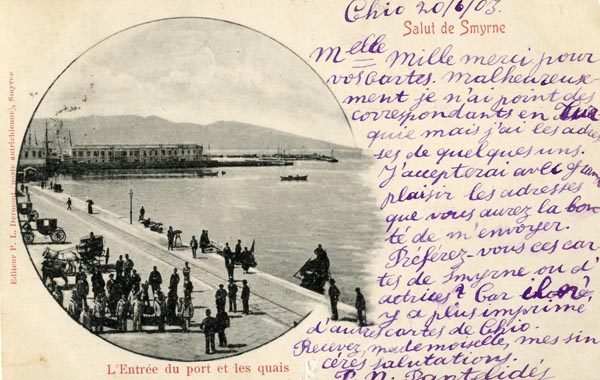 Chio 20/6/03.
Salut de Smyrne
Melle Mille merci pour
vos cartes. Malheureuse-
ment je n'ai point des
correspondants en Tur
quie mais j'ai les adres
ses de quelques uns.
J'accepterai avec grand
plaisir les adresses
que vous aurez la bon
té de m'envoyer.
Préférez-vous ces car
tes de Smyrne ou d'
actrices? Car
y a plus imprimé
d'autres cartes de Chio.
Recevez, mademoiselle, mes sin
cères salutations.
P. N. Pantelidés
Editeur P. L. Dermond (poste autrichienne), Smyrne
L'Entrée du port et les quais